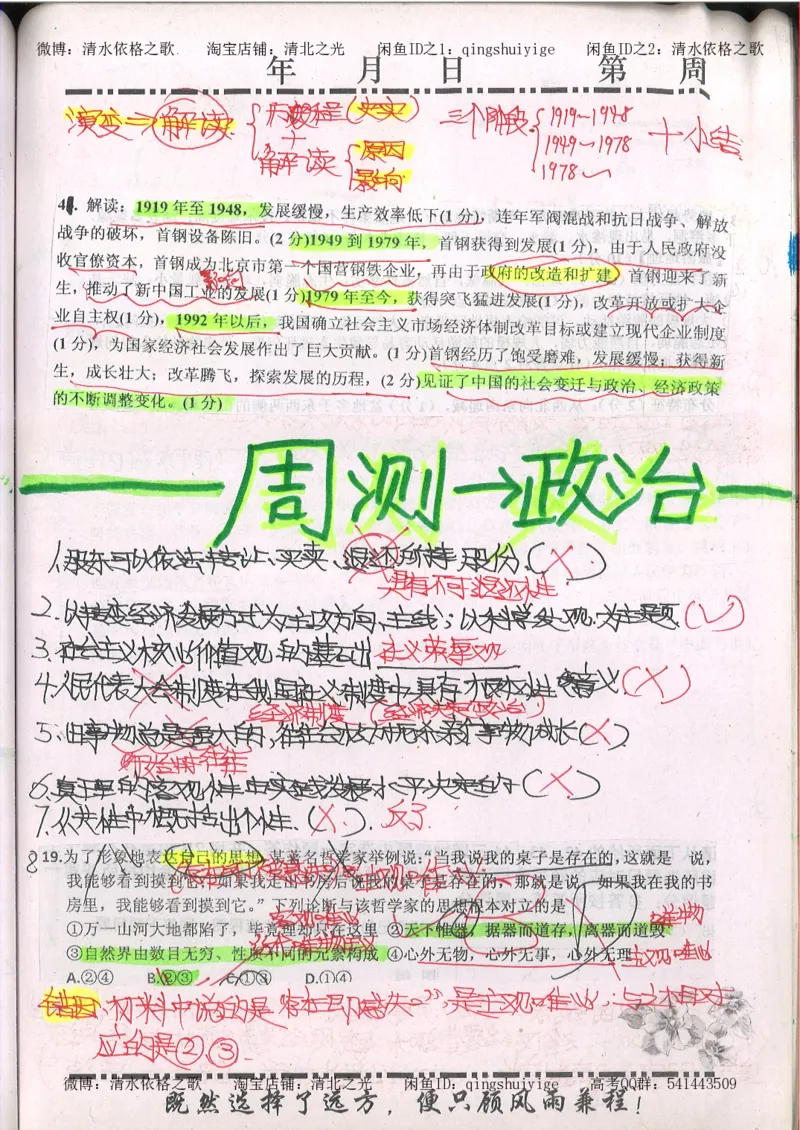 微博：清水依格之歌 淘宝店铺：清北之光 闲鱼ID之1：qingshuiyige 闲鱼ID之2：清水依格之歌
年 月 日 第 周
演变→解读 过程（史实） + 解读 原因 影响 三个阶段 1919~1948 1949~1978 1978~ +小结
41. 解读：1919年至1948，发展缓慢，生产效率低下(1分)，连年军阀混战和抗日战争、解放
战争的破坏，首钢设备陈旧。(2分)1949到1979年，首钢获得到发展(1分)，由于人民政府没
收官僚资本，首钢成为北京市第一个国营钢铁企业，再由于政府的改造和扩建，首钢迎来了新
生，推动了新中国工业的发展(1分)1979年至今，获得突飞猛进发展(1分)，改革开放或扩大企
业自主权(1分)，1992年以后，我国确立社会主义市场经济体制改革目标或建立现代企业制度
(1分)，为国家经济社会发展作出了巨大贡献。(1分)首钢经历了饱受磨难，发展缓慢；获得新
生，成长壮大；改革腾飞，探索发展的历程，(2分)见证了中国的社会变迁与政治、经济政策
的不断调整变化。(1分)
周测→政治
1.股东可以依法转让、买卖、退还所持股份.(×)
具有不可退还性
2.以转变经济发展方式为主攻方向、主线；以科学发展观为主题(√)
3.社会主义核心价值观的基石出 社义荣辱观
4.人民代表大会制度在我国社义制度中具有根本性意义(×)
经济制度（经济决定政治）
5.旧事物总是强大的,往往会极力扼杀新事物成长(×).
应当用往往
6.真理的客观性由实践发展水平决定的(×)
7.从共性中概括出个性.(×). 反了
8 19.为了形象地表达自己的思想，某著名哲学家举例说：“当我说我的桌子是存在的，这就是 说，
我能够看到摸到它。如果我走出书房后说我的桌子是存在的，那就是说，如果我在我的书
房里，我能够看到摸到它。”下列论断与该哲学家的思想根本对立的是
①万一山河大地都陷了，毕竟理却只在这里 ②天下惟器，据器而道存，离器而道毁
③自然界由数目无穷、性质不同的元素构成 ④心外无物，心外无事，心外无理 主观唯心
A.②④ B.②③ C.①③ D.①④
错因：材料中说的是“存在即感知”,是主观唯心；与之相对
应的是②③.
微博：清水依格之歌 淘宝店铺：清北之光 闲鱼ID：qingshuiyige 高考QQ群：541443509
既然选择了远方，便只顾风雨兼程！